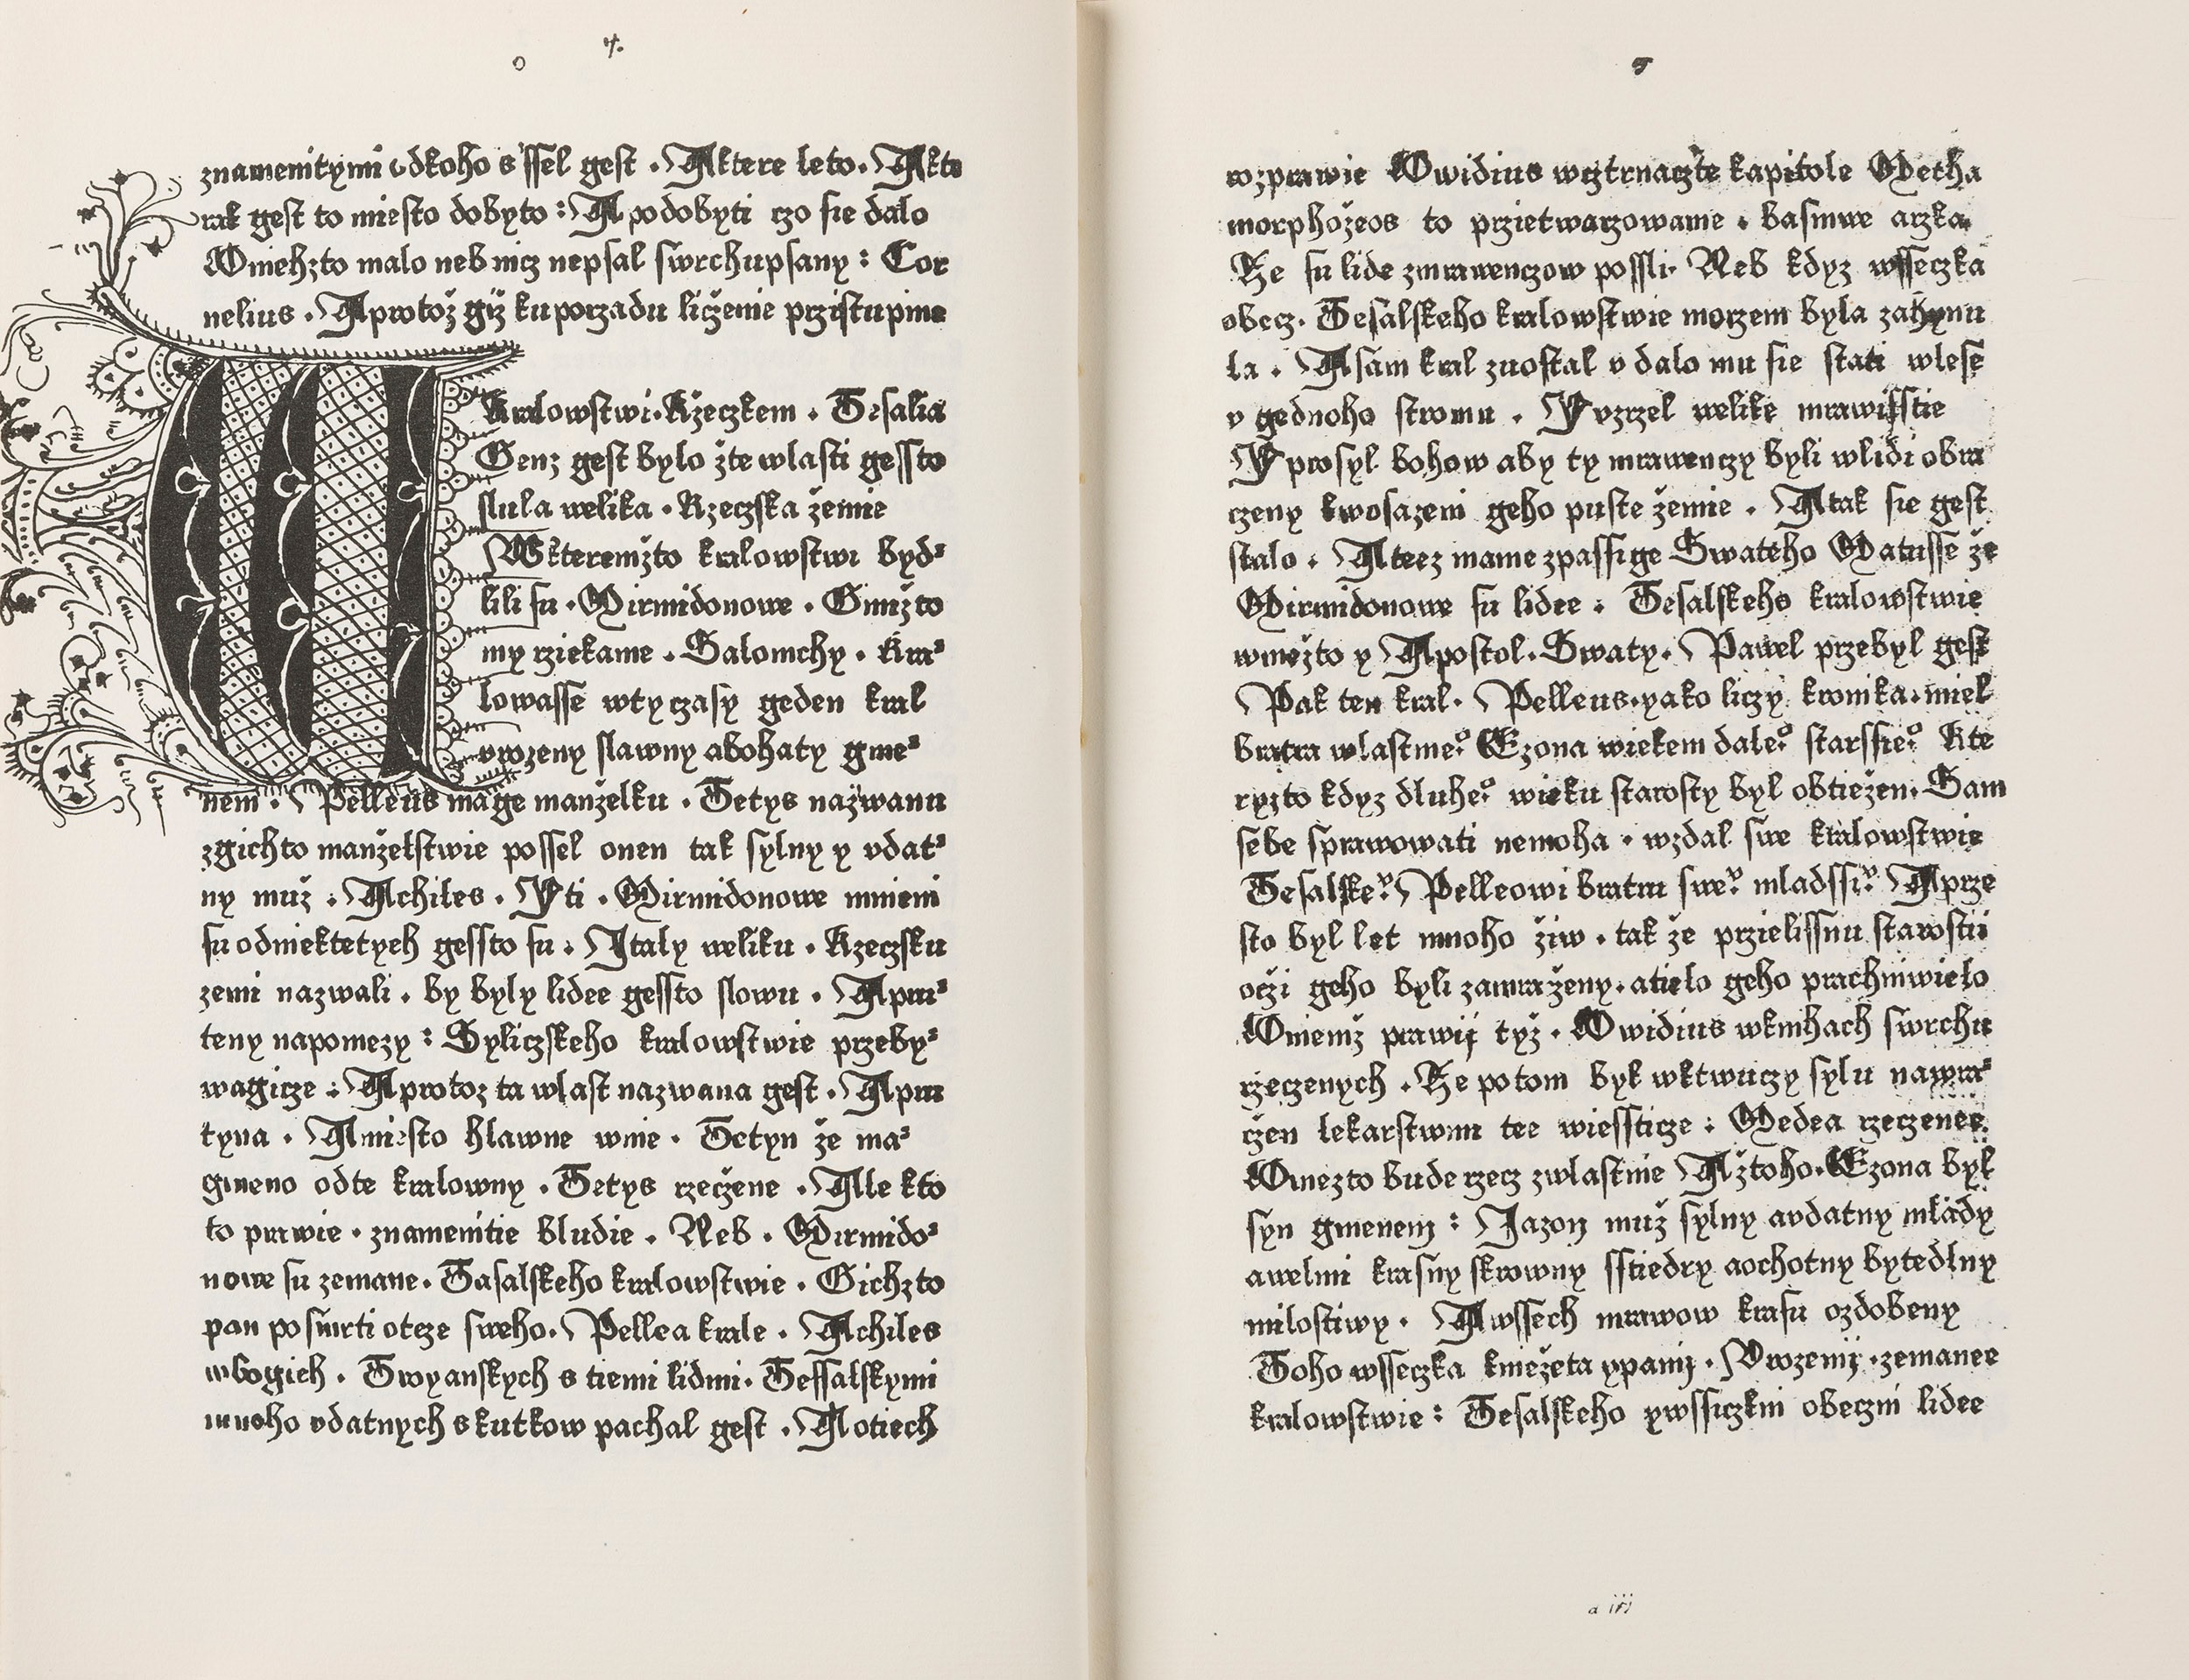 4.
znamenitymi odkoho s'ssel gest . Aktere leto . Akte
rak gest to miesto dobyto : A podobyti czo sie dalo
Omehzto malo neb nicz nepsal swrchupsany : Cor
nelius . Aprotož giž kuporzadu ližcenie przistupime
W
Kralowstwi . Ržeczkem . Tesalia
Genz gest bylo žte wlasti gessto
slula welika . Rzeczska žemie
Wkteremžto kralowstwi byd
lili su . Mirmidonowe . Gimžto
my rziekame . Salomchy . Kra
lowasse wty czasy geden kral
vrozeny slawny abohaty gme
nem . Pelleus mage manželku . Tetys nažwanu
zgichto manželstwie possel onen tak sylny y vdat
ny muž . Achiles . Yti . Mirmidonowe mnieni
su odniektetych gessto su . Italy weliku . Rzeczsku
zemi nazwali . by byly lidee gessto slowu . Apru
teny napomezy : Syliczskeho kralowstwie przeby
wagicze : Aprotoz ta wlast nazwana gest . Apru
tyna . Amiesto hlawne wnie . Tetyn že ma
gmeno odte kralowny . Tetys rzečžene . Ale kto
to prawie . znamenitie bludie . Neb . Mirmido
nowe su zemane . Tasalskeho kralowstwie . Gichzto
pan po smrti otcze sweho . Pellea krale . Achiles
wbogich . Troyanskych s tiemi lidmi . Tessalskymi
mnoho vdatnych skutkow pachal gest . Aotiech
5
rozprawie Owidius wcztrnaczte kapitole Metha
morphožeos to przietwarzowanie . basniwe arzka
Že su lide zmrawenczow possli . Neb kdyz wsseczka
obecz . Tesalskeho kralowstwie morzem byla zahynu
la . A sam kral zuostal v dalo mu sie stati wlese
v gednoho stromu . Y vzrzel welike mrawisstie
Y prosyl bohow aby ty mrawenczy byli wlidi obra
czeny kwosazeni geho puste žemie . Atak sie gest
stalo . Ateez mame zpassige Swateho Matusse že
Mirmidonowe su lidee . Tesalskeho kralowstwie
wniežto y Apostol . Swaty . Pawel przebyl gest
Pak ten kral . Pelleus . yako liczy kronika . miel
bratra wlastnieᵒ Ezona wiekem daleᵒ starssieᵒ kte
ryzto kdyz dluheᵒ wieku starosty byl obtiežen . Sam
sebe sprawowati nemoha . wzdal swe kralowstwie
Tesalskeᵛ Pelleowi bratru sweᵛ mladssiᵛ Aprze
sto byl let mnoho žiw . tak že przielissnu starostii
oczi geho byli zamraženy . atielo geho prachniwielo
Oniemž prawij tyž . Owidius wknihach swrchu
rzeczenych . Že potom byl wktwuczy sylu nawra
czen lekarstwim tee wiessticze : Medea rzeczenee
Oniezto bude rzecz zwlastnie Ažtoho . Ezona byl
syn gmenem : Jazon muž sylny avdatny mlady
awelmi krasny skrowny sstiedry aochotny bytedlny
milostiwy . Awssech mrawow krasu ozdobeny
Toho wsseczka kniežeta ypani . Vrozenij . zemanee
kralowstwie : Tesalskeho ywssiczkni obeczni lidee
a iij